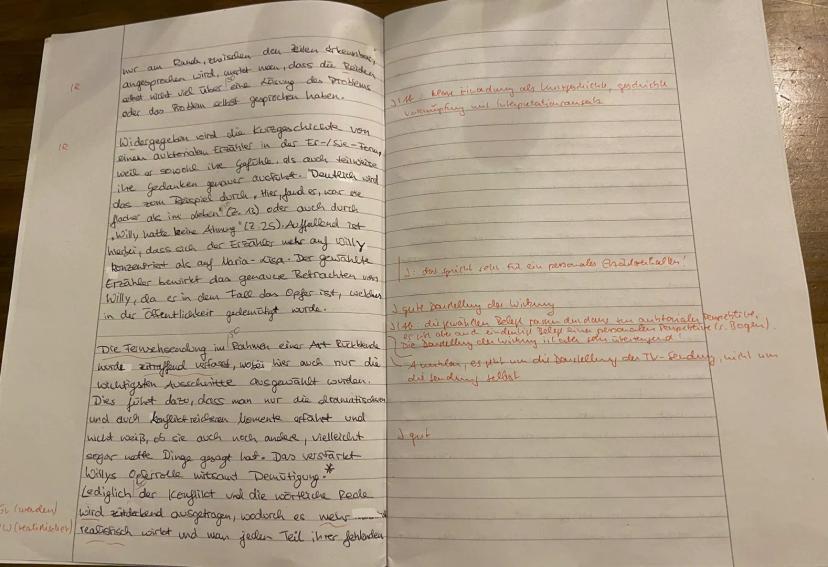 nur am Rande, zwischen den Zeilen erkennbar,
angesprochen wird, merkt man, dass die Beiden
selbst nicht viel über eine Lösung des Problems
oder das Problem selbst gesprochen haben.
Widergegeben wird die Kurzgeschichte von
einem auktorialen Erzähler in der Er-/Sie-Form,
weil er sowohl ihre Gefühle, als auch teilweise
ihre Gedanken genauer ausführt. Deutlich wird
das zum Beispiel durch "Hier, fand er, war sie
flacher als im" (Z. 13) oder auch durch
"Willy hatte keine Ahnung" (Z. 25). Auffallend ist
hierbei, dass sich der Erzähler mehr auf Willy
konzentriert als auf Maria-Lisa. Der gewählte
Erzähler bewirkt das genaue Betrachten von
Willy, da er in dem Fall das Opfer ist, welches
in der Öffentlichkeit gedemütigt wurde.
Die Fernsehsendung im Rahmen einer Art Rückblende
wurde zeitraffend verfasst, wobei hier auch nur die
wichtigsten Ausschnitte ausgewählt wurden.
Dies führt dazu, dass man nur die dramatischen
und auch konfliktreicheren Momente erfährt und
nicht weiß, ob sie auch noch andere, vielleicht
sogar nette Dinge gesagt hat. Das verstärkt
Willys Opferrolle mitsamt Demütigung.*
Lediglich der Konflikt und die wörtliche Rede
wird zeitdeckend ausgetragen, wodurch es mehr
realistisch wirkt und man jeden Teil ihrer fehlenden
IR
IR
(werden)
(realistischer)
als Kurzgeschichte, geschickte
Verknüpfung mit Interpretationsansatz
J: das spricht sehr für ein personales Erzählverhalten!
J gute Darstellung der Wirkung
die gewählten Belege passen zur auktorialen Perspektive,
es ist aber auch ein Beleg einer personalen Perspektive (s. Bogen).
Die Darstellung der Wirkung ist sehr überzeugend!
es geht um die Darstellung der TV-Sendung, nicht um
die Sendung selbst
J gut